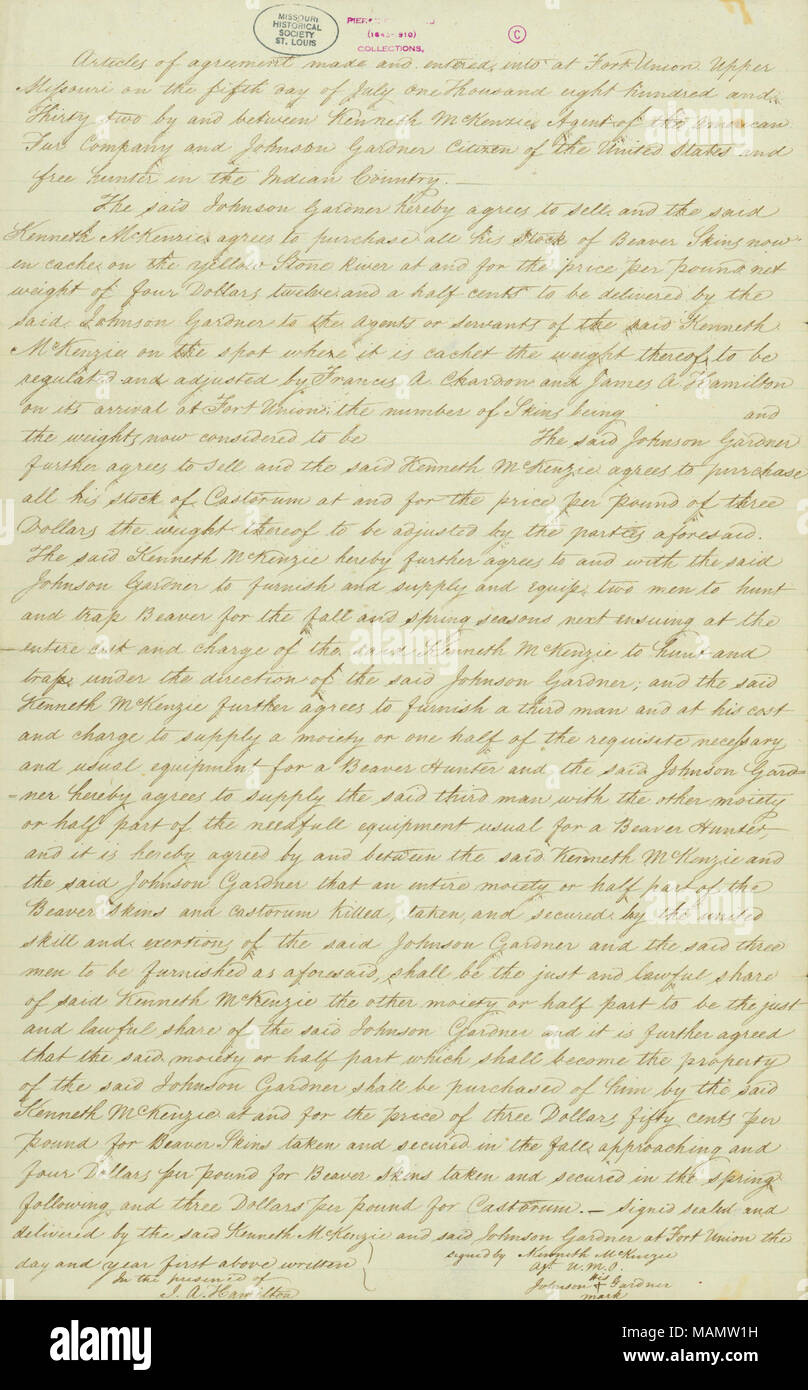 MISSOURI
HISTORICAL
SOCIETY
ST. LOUIS
COLLECTIONS.
C
Articles of agreement made and entered into at Fort Union Upper
Missouri on the fifth day of July one Thousand eight hundred and
Thirty two by and between Kenneth McKenzie Agent of the American
Fur Company and Johnson Gardner Citizen of the United States and
free hunter in the Indian Country. —
The said Johnson Gardner hereby agrees to sell and the said
Kenneth McKenzie agrees to purchase all his Stock of Beaver Skins now
en cache on the yellow Stone River at and for the price per pound net
weight of four Dollars twelve and a half cents to be delivered by the
said Johnson Gardner to the Agents or servants of the said Kenneth
McKenzie on the spot where it is cachet the weight thereof to be
regulated and adjusted by Francis A Chardon and James A Hamilton
on its arrival at Fort Union, the number of Skins being and
the weight now considered to be The said Johnson Gardner
further agrees to sell and the said Kenneth McKenzie agrees to purrchase
all his stock of Castorum at and for the price per pound of three
Dollars the weight thereof to be adjusted by the parties aforesaid.
The said Kenneth McKenzie hereby further agrees to and with the said
Johnson Gardner to furnish and supply and equip two men to hunt
and trap Beaver for the fall and spring seasons next ensuing at the
entire cost and charge of the said Kenneth McKenzie to hunt and
trap under the direction of the said Johnson Gardner; and the said
Kenneth McKenzie further agrees to furnish a third man and at his cost
and charge to supply a moiety or one half of the requisite necessary
and usual equipment for a Beaver Hunter and the said Johnson Gard=
=ner hereby agrees to supply the said third man with the other moiety
or half part of the needfull equipment usual for a Beaver Hunter,
and it is hereby agreed by and between the said Kenneth McKenzie and
the said Johnson Gardner that an entire moiety or half part of the
Beaver Skins and castorum killed, taken, and secured by the united
skill and exertions of the said Johnson Gardner and the said three
men to be furnished as aforesaid, shall be the just and lawful share
of said Kenneth McKenzie the other moiety or half part to be the just
and lawful share of the said Johnson Gardner and it is further agreed
that the said moiety or half part which shall become the property
of the said Johnson Gardner shall be purchased of him by the said
Kenneth McKenzie at and for the price of three Dollars fifty cents per
pound for Beaver Skins taken and secured in the fall approaching and
four Dollars per pound for Beaver Skins taken and secured in the spring
following and three Dollars per pound for Castorum. — Signed sealed and
delivered by the said Kenneth McKenzie and said Johnson Gardner at Fort Union the
day and year first above written
signed by Kenneth McKenzie
Agt U.M.O.
In the presence of
J. A. Hamilton
his
Johnson + Gardner
mark
alamy
alamy
MAMW1H
www.alamy.com